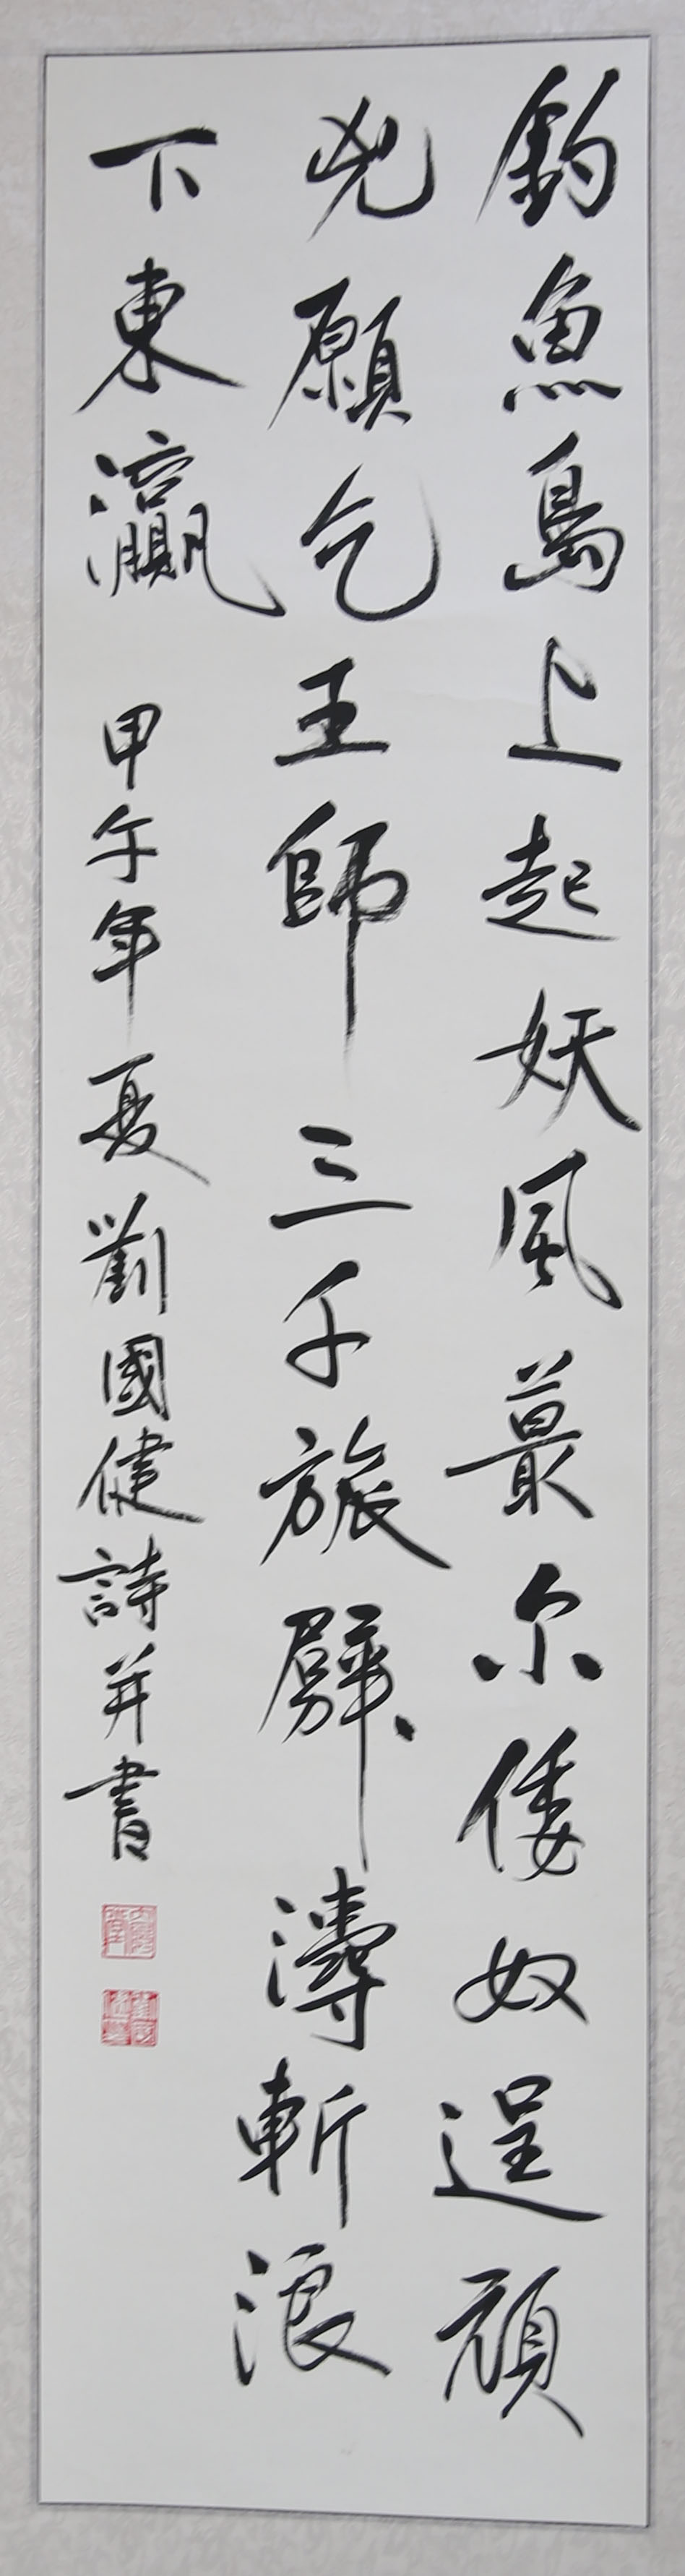 釣魚島上起妖風蕞尔倭奴逞頑
兇願乞王師三千旅劈濤斬浪
下東瀛
甲午年夏劉國健詩并書